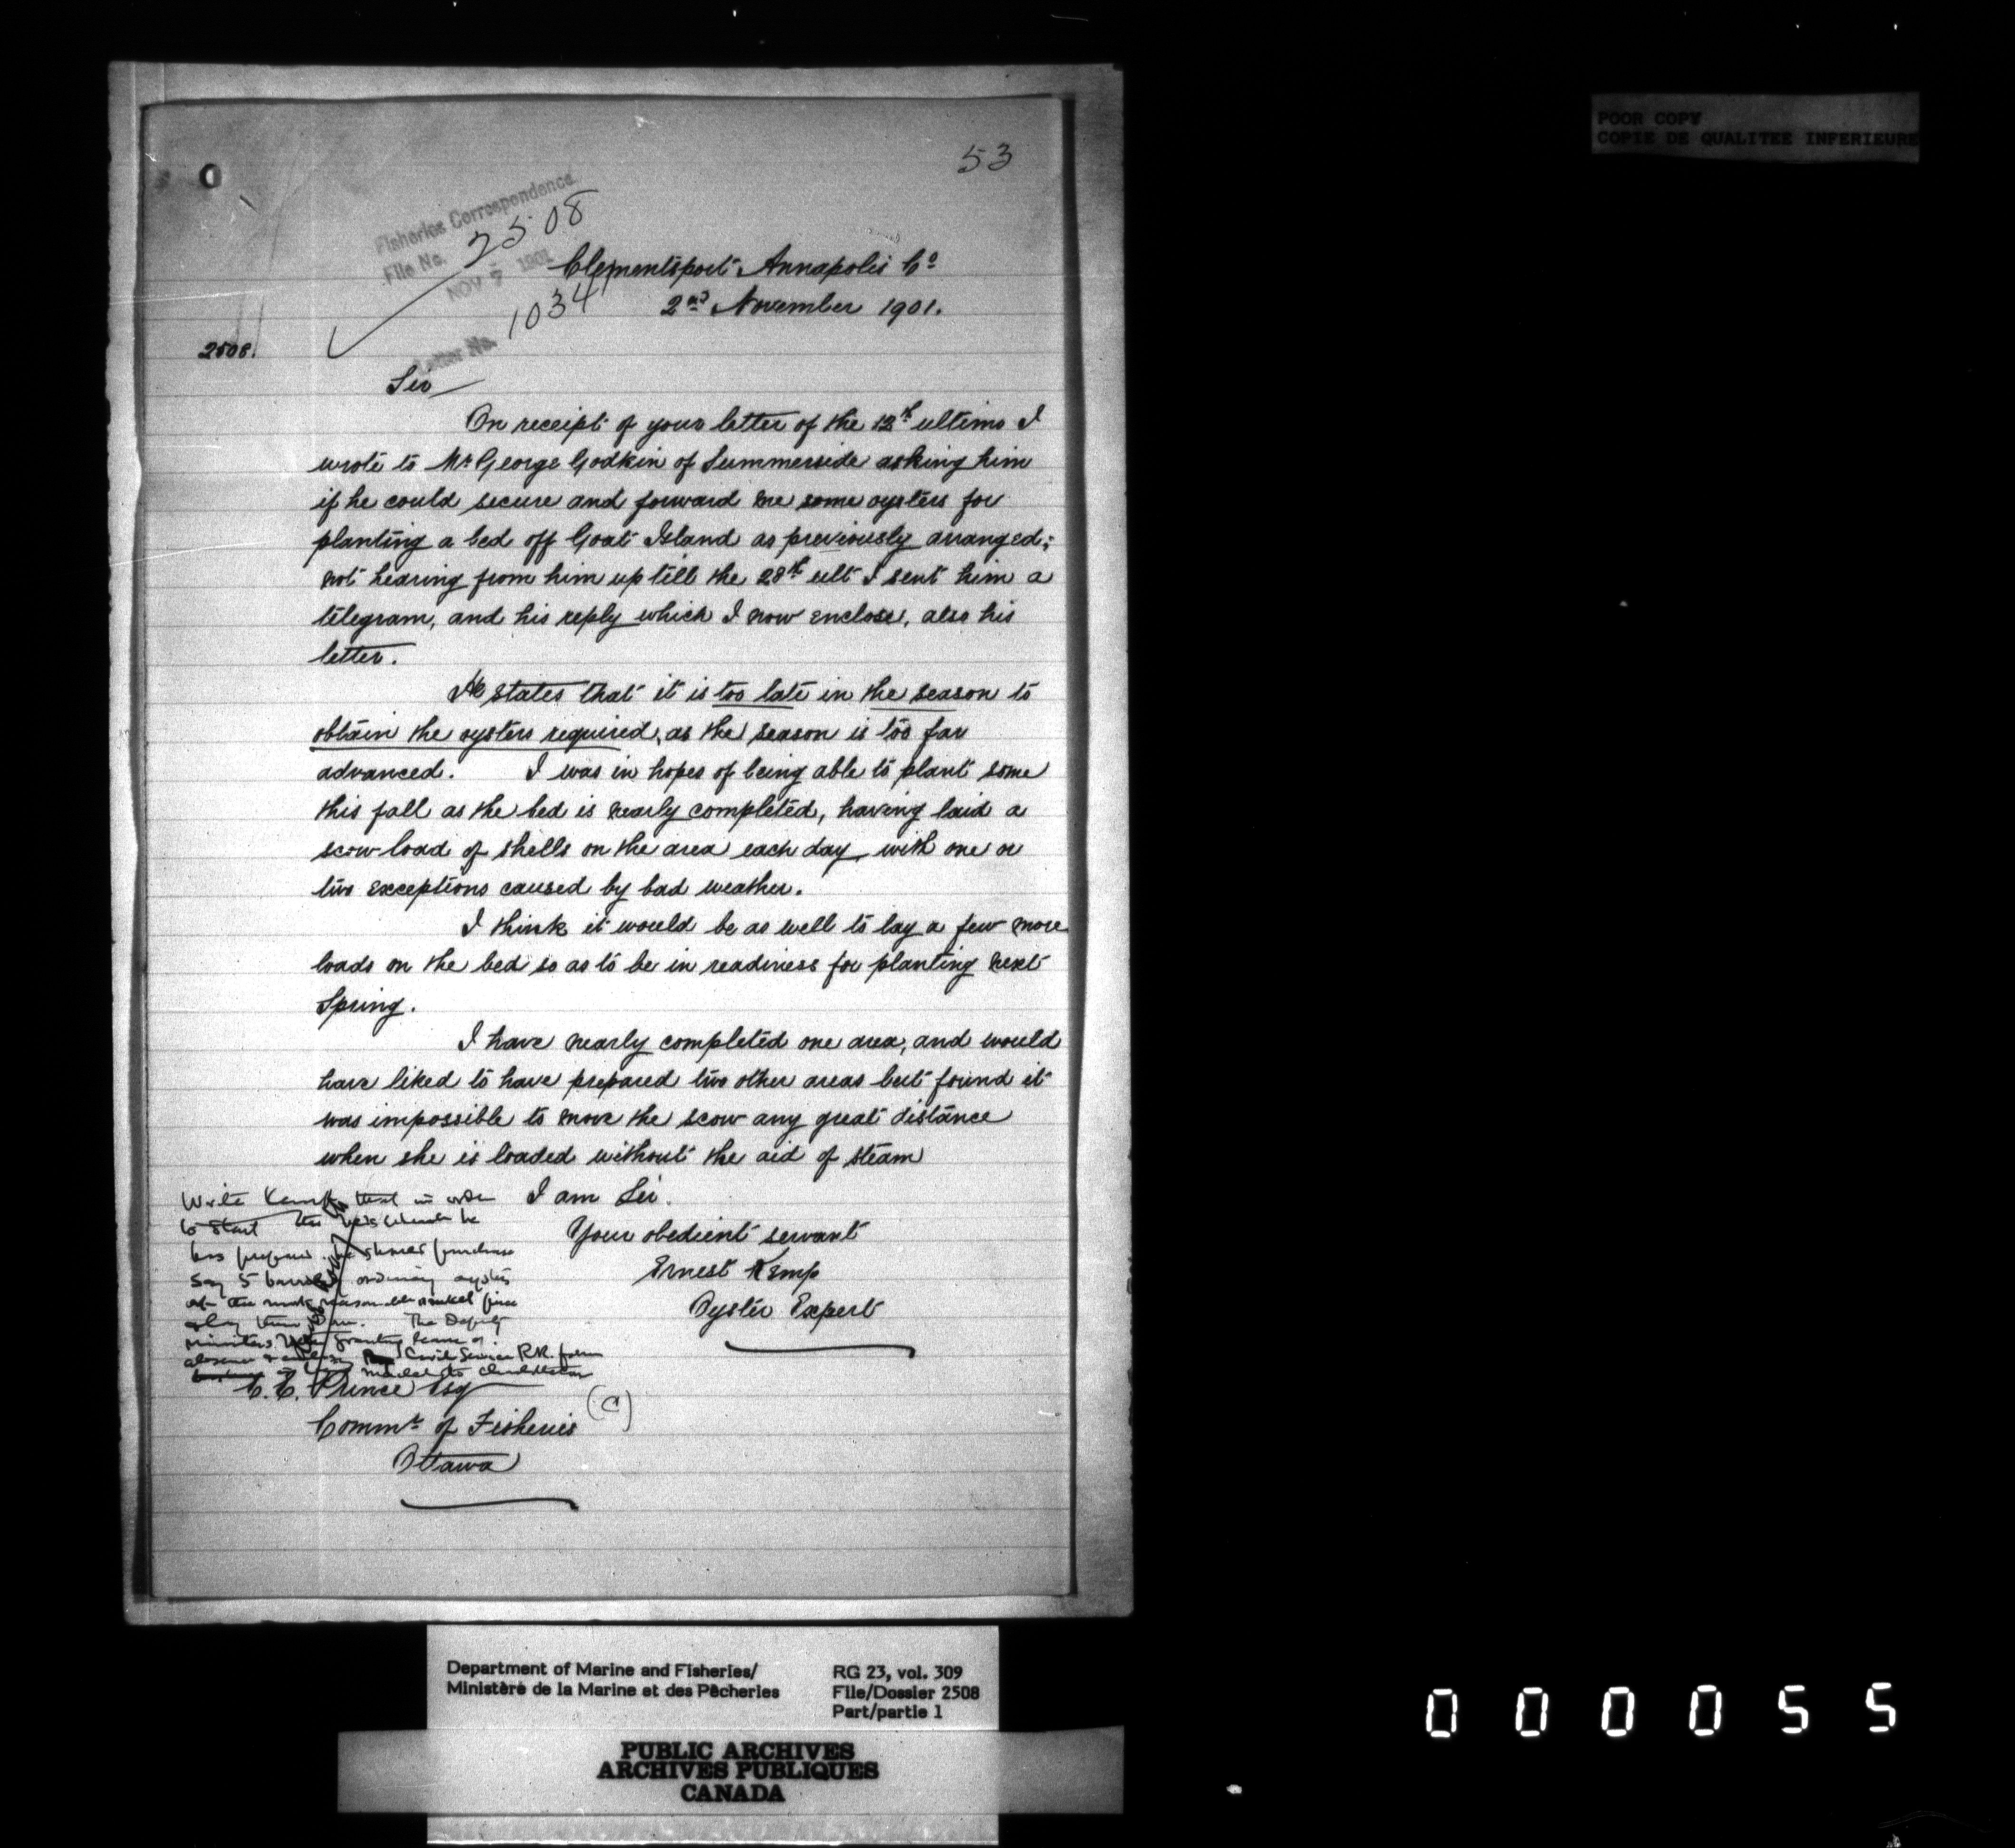 POOR COPY
COPIE DE QUALITEE INFERIEURE
53
Fisheries Correspondence
File No. 2508
NOV 7 1901
Letter No. 1034
Clementsport Annapolis Co
2nd November 1901.
2508.
Sir
On receipt of your letter of the 12th ultimo I
wrote to Mr George Godkin of Summerside asking him
if he could secure and forward me some oysters for
planting a bed off Goat Island as previously arranged;
not hearing from him up till the 28th ult I sent him a
telegram, and his reply which I now enclose, also his
letter.
He states that it is too late in the season to
obtain the oysters required, as the season is too far
advanced. I was in hopes of being able to plant some
this fall as the bed is nearly completed, having laid a
scow load of shells on the area each day, with one or
two exceptions caused by bad weather.
I think it would be as well to lay a few more
loads on the bed so as to be in readiness for planting next
Spring.
I have nearly completed one area, and would
have liked to have prepared two other areas but found it
was impossible to move the scow any great distance
when she is loaded without the aid of steam
I am Sir.
Your obedient servant
Ernest Kemp
Oyster Expert
Write Kemp that in order
to start the beds which he
has prepared he should purchase
say 5 barrels ordinary oysters
at the most reasonable market price
& lay them down. The Deputy
Minister granting leave of
absence Civil Service R.R. form
E. E. Prince Esq
(C)
Commr of Fisheries
Ottawa
Department of Marine and Fisheries/
Ministère de la Marine et des Pêcheries
RG 23, vol. 309
File/Dossier 2508
Part/partie 1
PUBLIC ARCHIVES
ARCHIVES PUBLIQUES
CANADA
000055